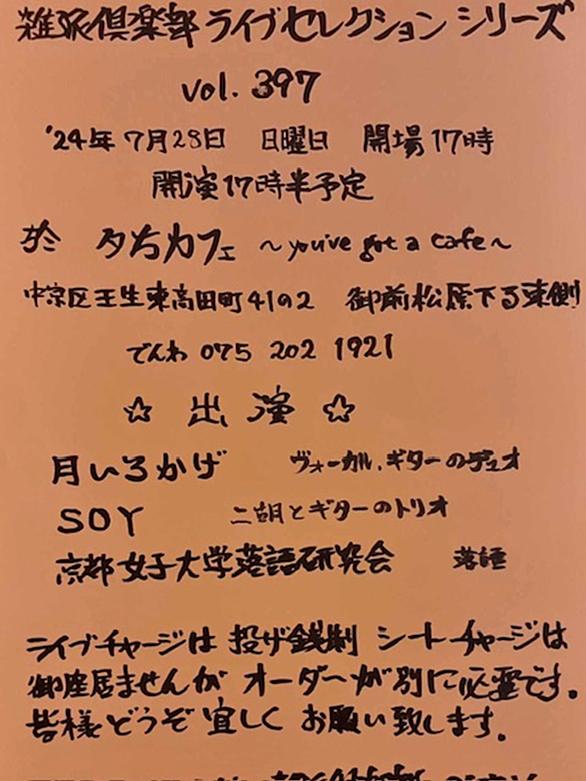 雑派倶楽部 ライブセレクション シリーズ
vol. 397
'24年 7月28日 日曜日 開場17時
開演17時半予定
於 夕方カフェ ～you've got a cafe～
中京区壬生東高田町41の2 御前松原下る東側
でんわ 075 202 1921
☆ 出演 ☆
月いろかげ ヴォーカル、ギターのデュオ
SOY 二胡とギターのトリオ
京都女子大学落語研究会 落語
ライブチャージは 投げ銭制 シートチャージは
御座居ませんが オーダーが別に必要です。
皆様どうぞ宜しく お願い致します。